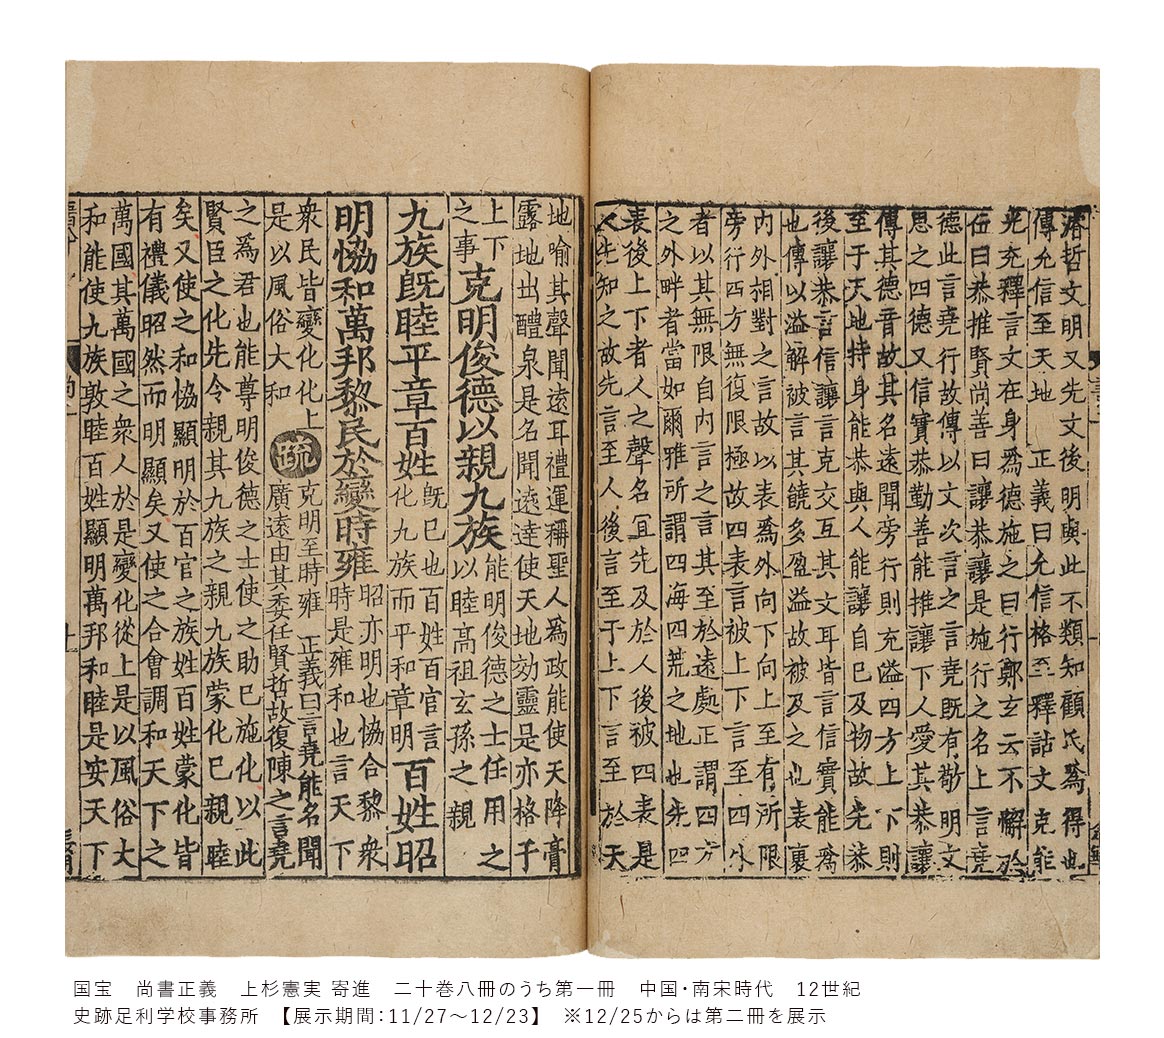 濬哲文明又先文後明與此不類知顧氏為得也
傳允信至天地　正義曰允信格至釋詁文克能
光充釋言文在身為德施之曰行鄭玄云不懈於
位曰恭推賢尚善曰讓恭讓是施行之名上言堯
德此言堯行故傳以文次言之言堯既有敬明文
思之四德又信實恭勤善能推讓下人愛其恭讓
傳其德音故其名遠聞旁行則充溢四方上下則
至于天地持身能恭與人能讓自己及物故先恭
後讓恭言信讓言克交互其文耳皆言信實能為
也傳以溢解被言其饒多盈溢故被及之也表裏
內外相對之言故以表為外向下向上至有所限
旁行四方無復限極故四表言被上下言至四外
者以其無限自內言之言其至於遠處正謂四方
之外畔者當如爾雅所謂四海四荒之地也先四
表後上下者人之聲名宜先及於人後被四表是
人先知之故先言至人後言至于上下言至於天
地喻其聲聞遠耳禮運稱聖人為政能使天降膏
露地出醴泉是名聞遠達使天地効靈是亦格于
上下之事克明俊德以親九族能明俊德之士任用之以睦高祖玄孫之親
九族既睦平章百姓既已也百姓百官言化九族而平和章明百姓昭
明協和萬邦黎民於變時雍昭亦明也協合黎衆時是雍和也言天下
衆民皆變化化上是以風俗大和疏克明至時雍　正義曰言堯能名聞廣遠由其委任賢哲故復陳之言堯
之為君也能尊明俊德之士使之助己施化以此
賢臣之化先令親其九族之親九族蒙化已親睦
矣又使之和協顯明於百官之族姓百姓蒙化皆
有禮儀昭然而明顯矣又使之合會調和天下之
萬國其萬國之衆人於是變化從上是以風俗大
和能使九族敦睦百姓顯明萬邦和睦是安天下
国宝　尚書正義　上杉憲実 寄進　二十巻八冊のうち第一冊　中国・南宋時代　12世紀
史跡足利学校事務所　【展示期間：11/27〜12/23】　※12/25からは第二冊を展示